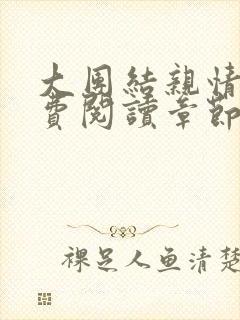 大团結親情
費閱讀章節
裸足人鱼清楚